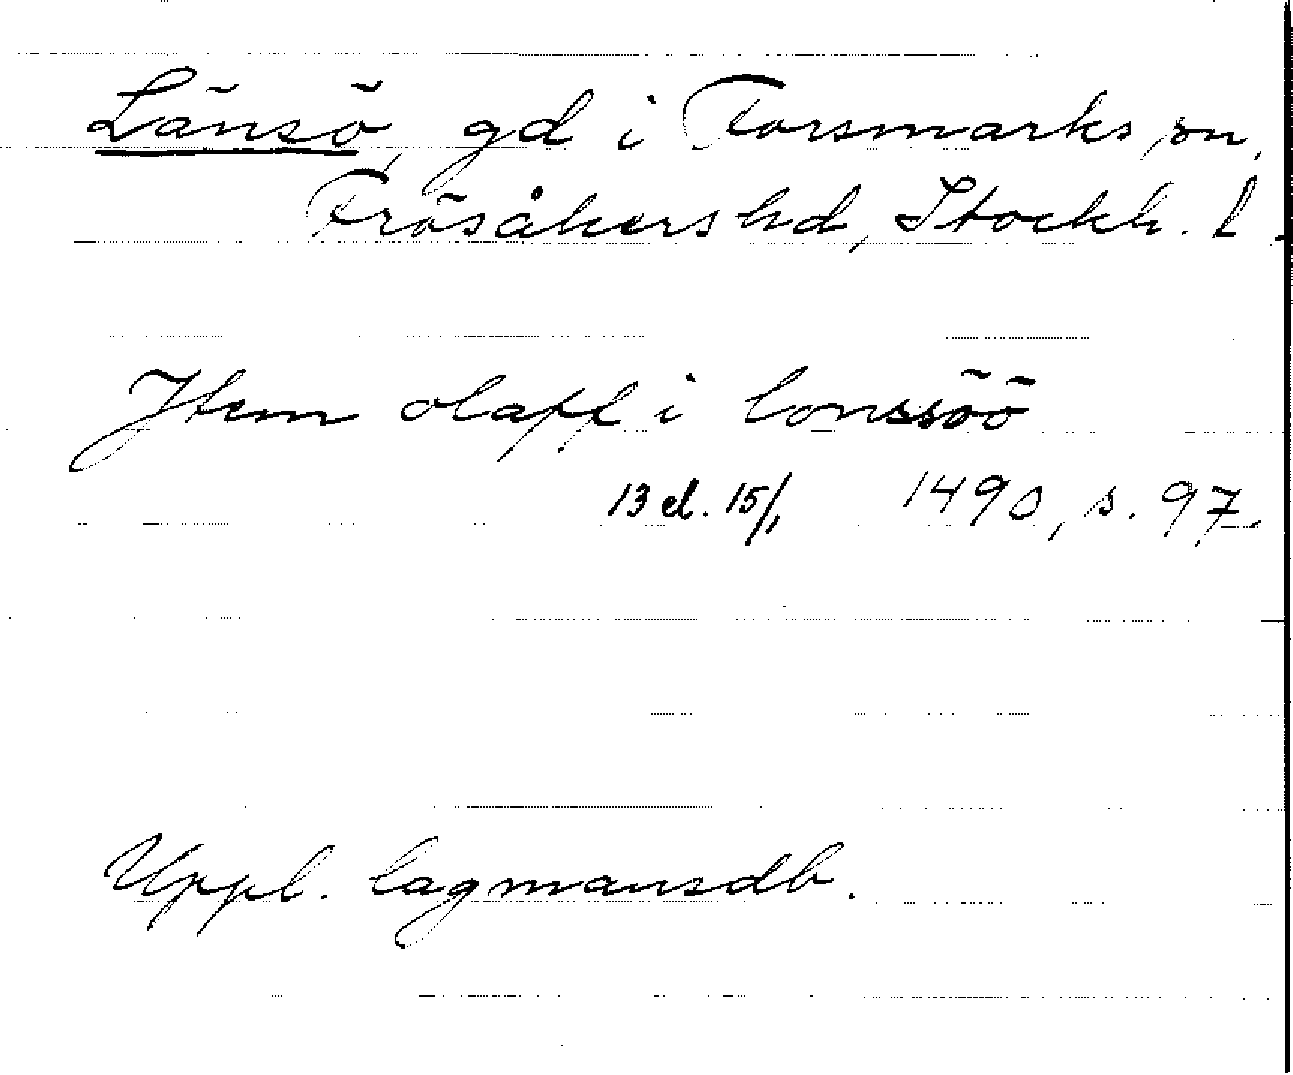 Länsö, gd i Forsmarks sn,
Frösåkers hd, Stockh. l.
Jtem olaff i lonssöö
13 el. 15/1 1490, s. 97.
Uppl. lagmansdb.